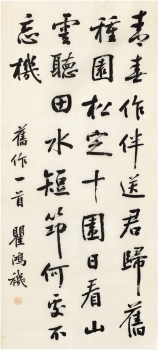 青春作伴送君歸舊
種園松定十圍日看山
雲聽田水短筇何處不
忘機
舊作一首 瞿鴻禨